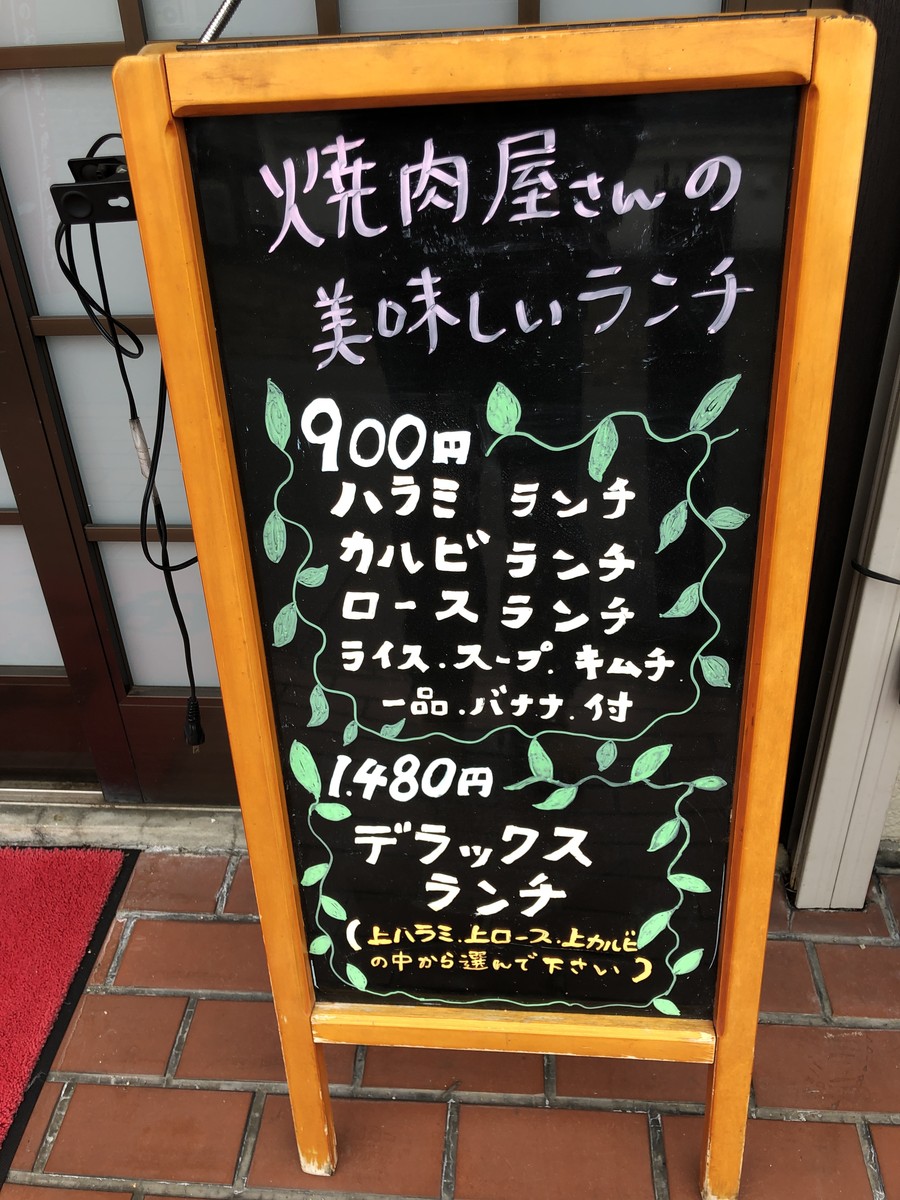 焼肉屋さんの
美味しいランチ
900円
ハラミ ランチ
カルビ ランチ
ロース ランチ
ライス.スープ.キムチ.
一品.バナナ.付
1.480円
デラックス
ランチ
(上ハラミ.上ロース.上カルビ
の中から選んで下さい)